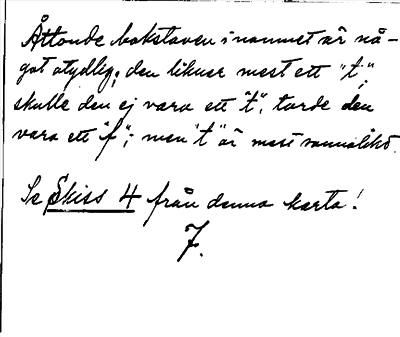 Åttonde bokstaven i namnet är nå-
got otydlig; den liknar mest ett "t".
skulle den ej vara ett "t", torde den
vara ett "f"; men "t" är mest sannolikt.
Se Skiss 4 från denna karta!
7.